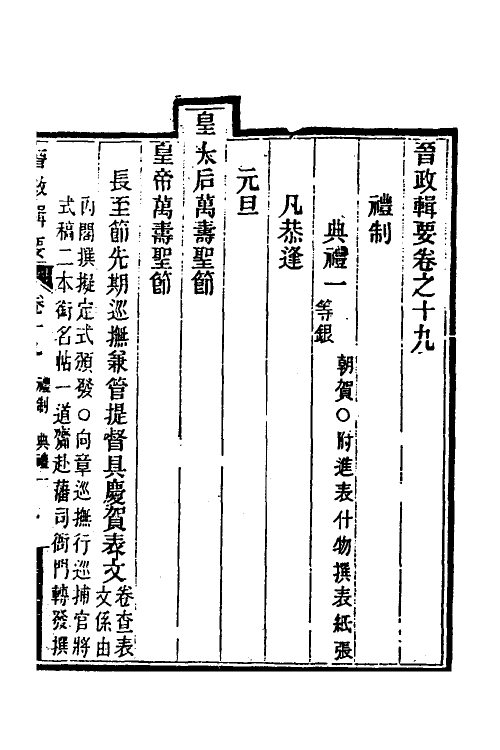 晉政輯要卷之十九
禮制
典禮一 朝賀○附進表什物撰表紙張
等銀
凡恭逢
元旦
皇太后萬壽聖節
皇帝萬壽聖節
長至節先期巡撫兼管提督具慶賀表文卷查表
文係由
內閣撰擬定式頒發○向章巡撫行巡捕官將
式稿二本銜名帖一道齎赴藩司衙門轉發撰
晉政輯要 卷十九 禮制 典禮一